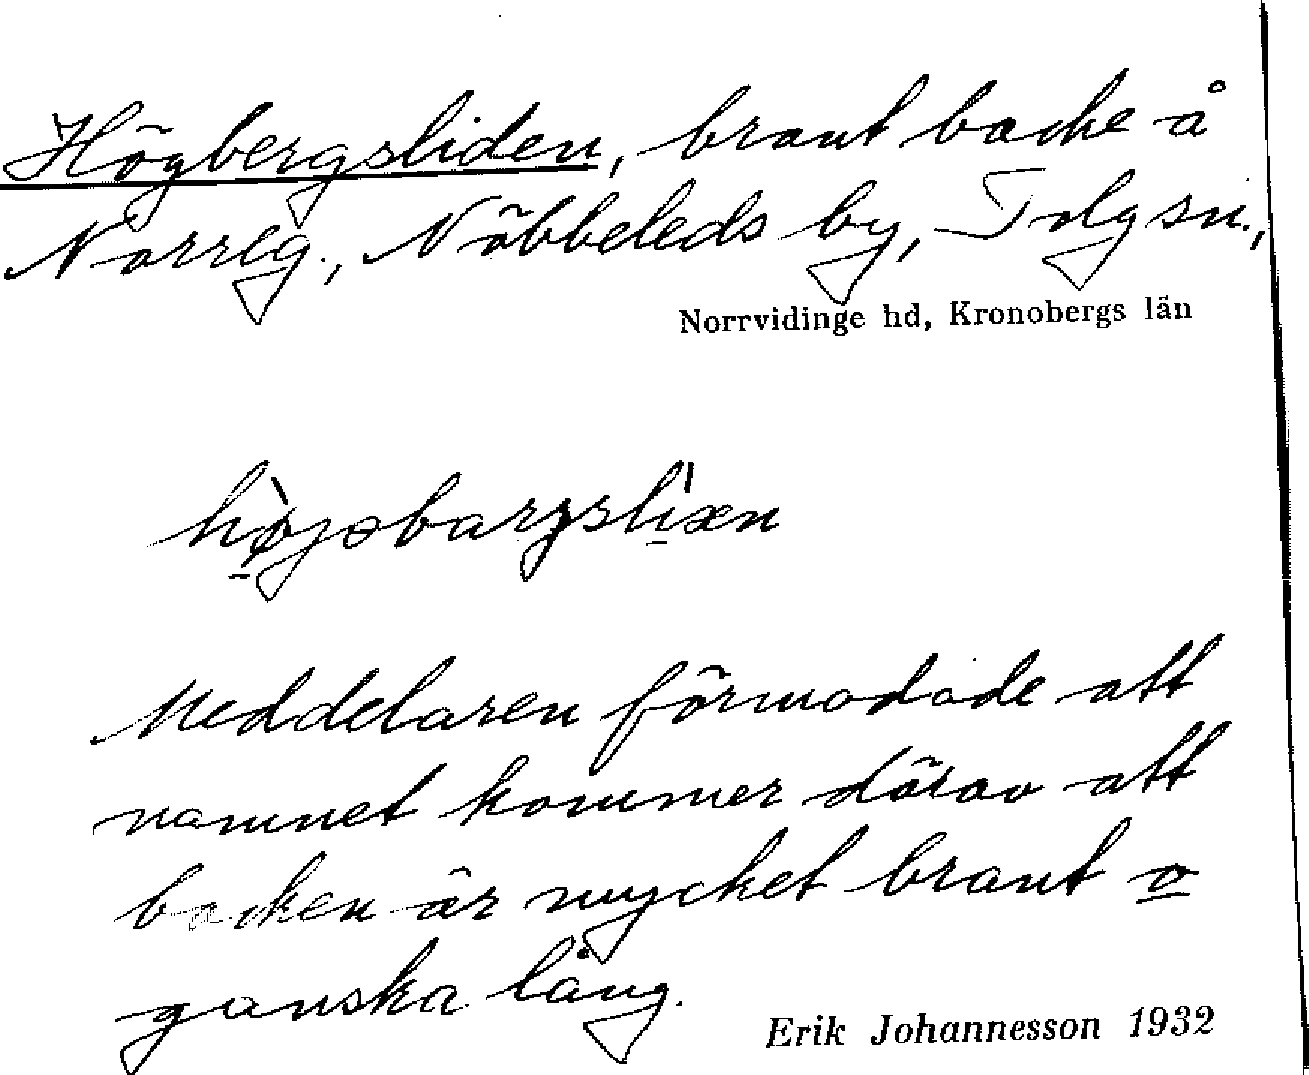 Högbergsliden, brant backe å
Norreg., Nöbbeleds by, Tolg sn.,
Norrvidinge hd, Kronobergs län
Meddelaren förmodade att
namnet kommer därav att
backen är mycket brant o
ganska lång.
Erik Johannesson 1932